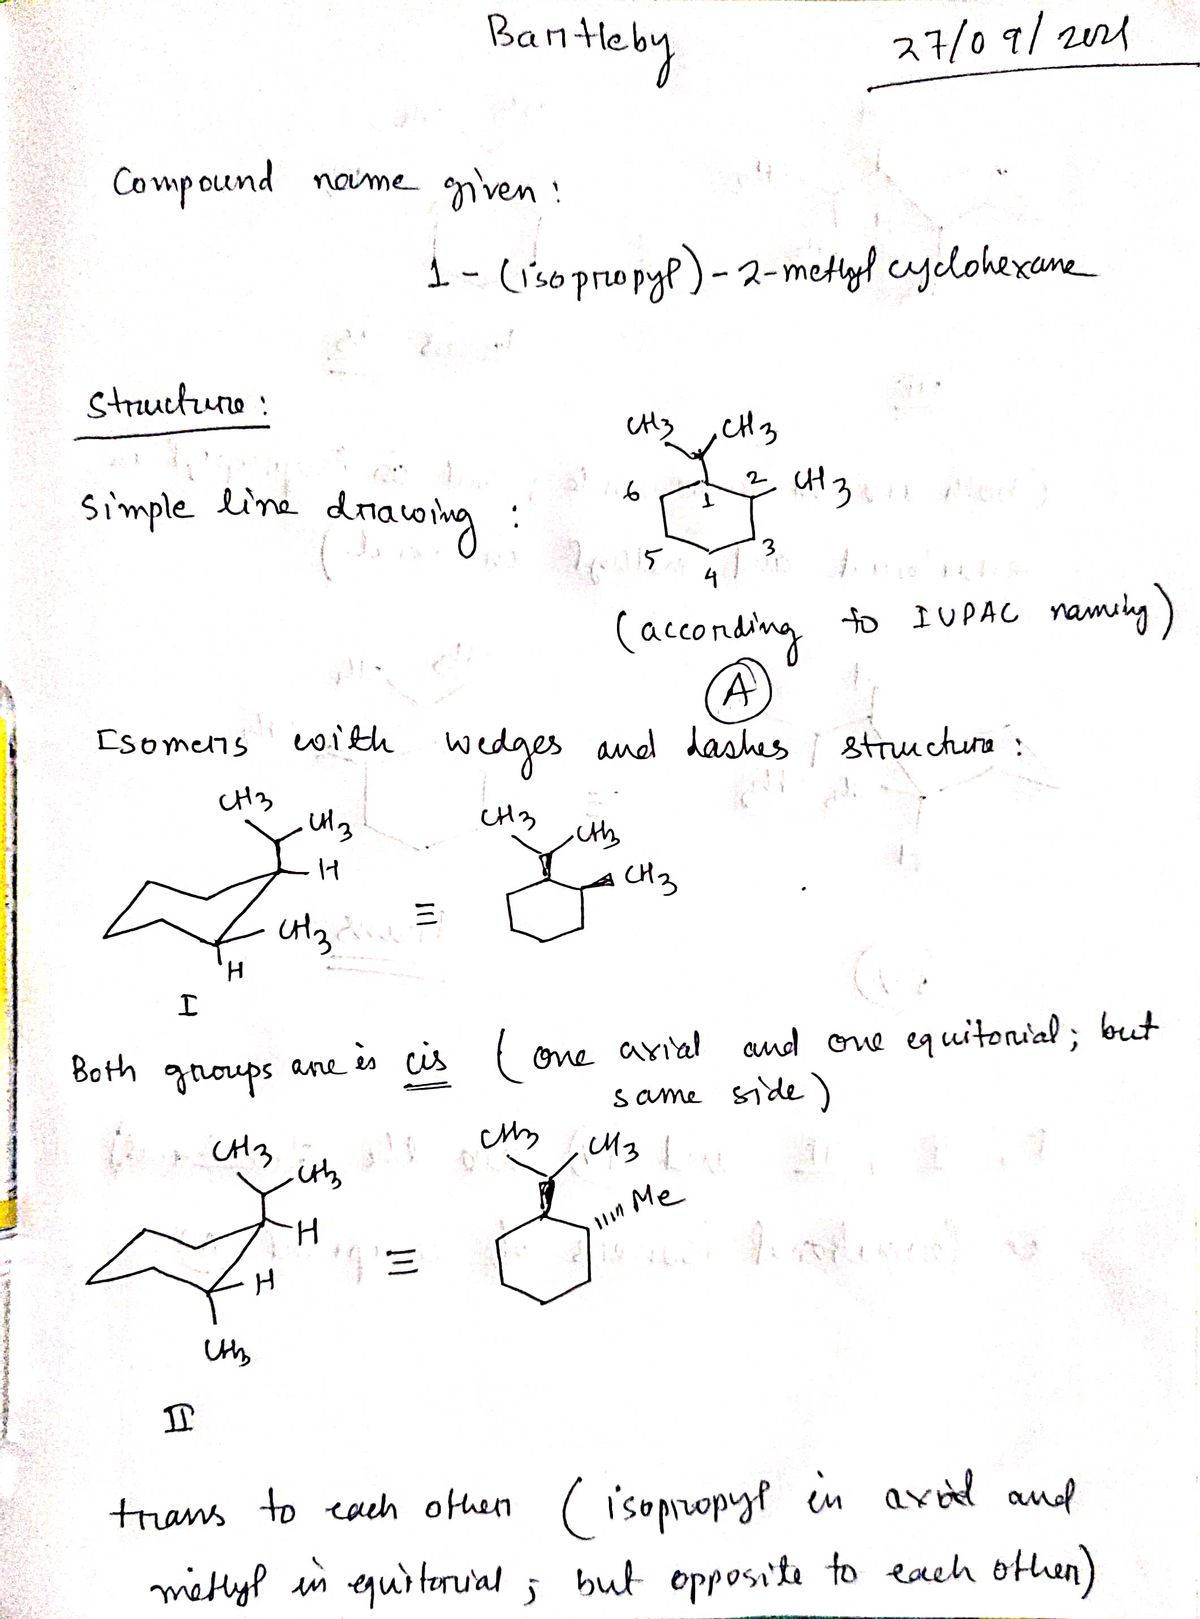 Bartleby
27/09/2021
Compound name given:
1-(isopropyl)-2-methyl cyclohexane
Structure:
CH3 CH3
6 1 2 CH3
Simple line drawing :
5 4 3
(according to IUPAC naming)
A
Isomers with wedges and dashes structure:
CH3 CH3 H CH3 H
≡
CH3 CH3 CH3
I
Both groups are is cis (one axial and one equitorial; but
same side)
CH3 CH3 H H CH3
≡
CH3 CH3 Me
II
trans to each other (isopropyl in axial and
methyl in equitorial; but opposite to each other)